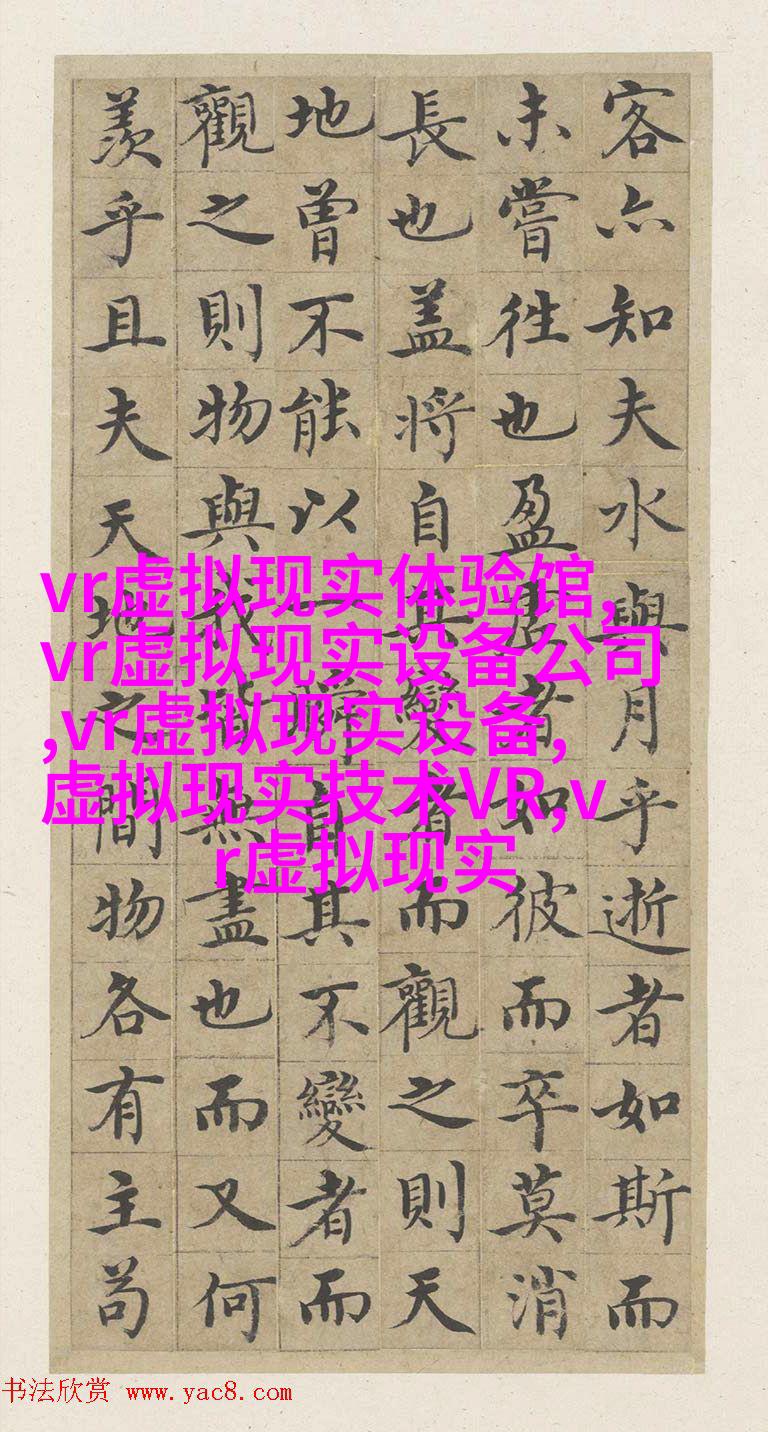 客亦知夫水與月乎逝者如斯而
未嘗往也盈虛者如彼而卒莫消
長也盖將自其變者而觀之則天
地曾不能以一瞬自其不變者而
觀之則物與我皆無盡也而又何
羨乎且夫天地之間物各有主苟
vr虚拟现实体验馆,
vr虚拟现实设备公司
,vr虚拟现实设备,
虚拟现实技术VR,v
r虚拟现实
书法欣赏 www.yac8.com